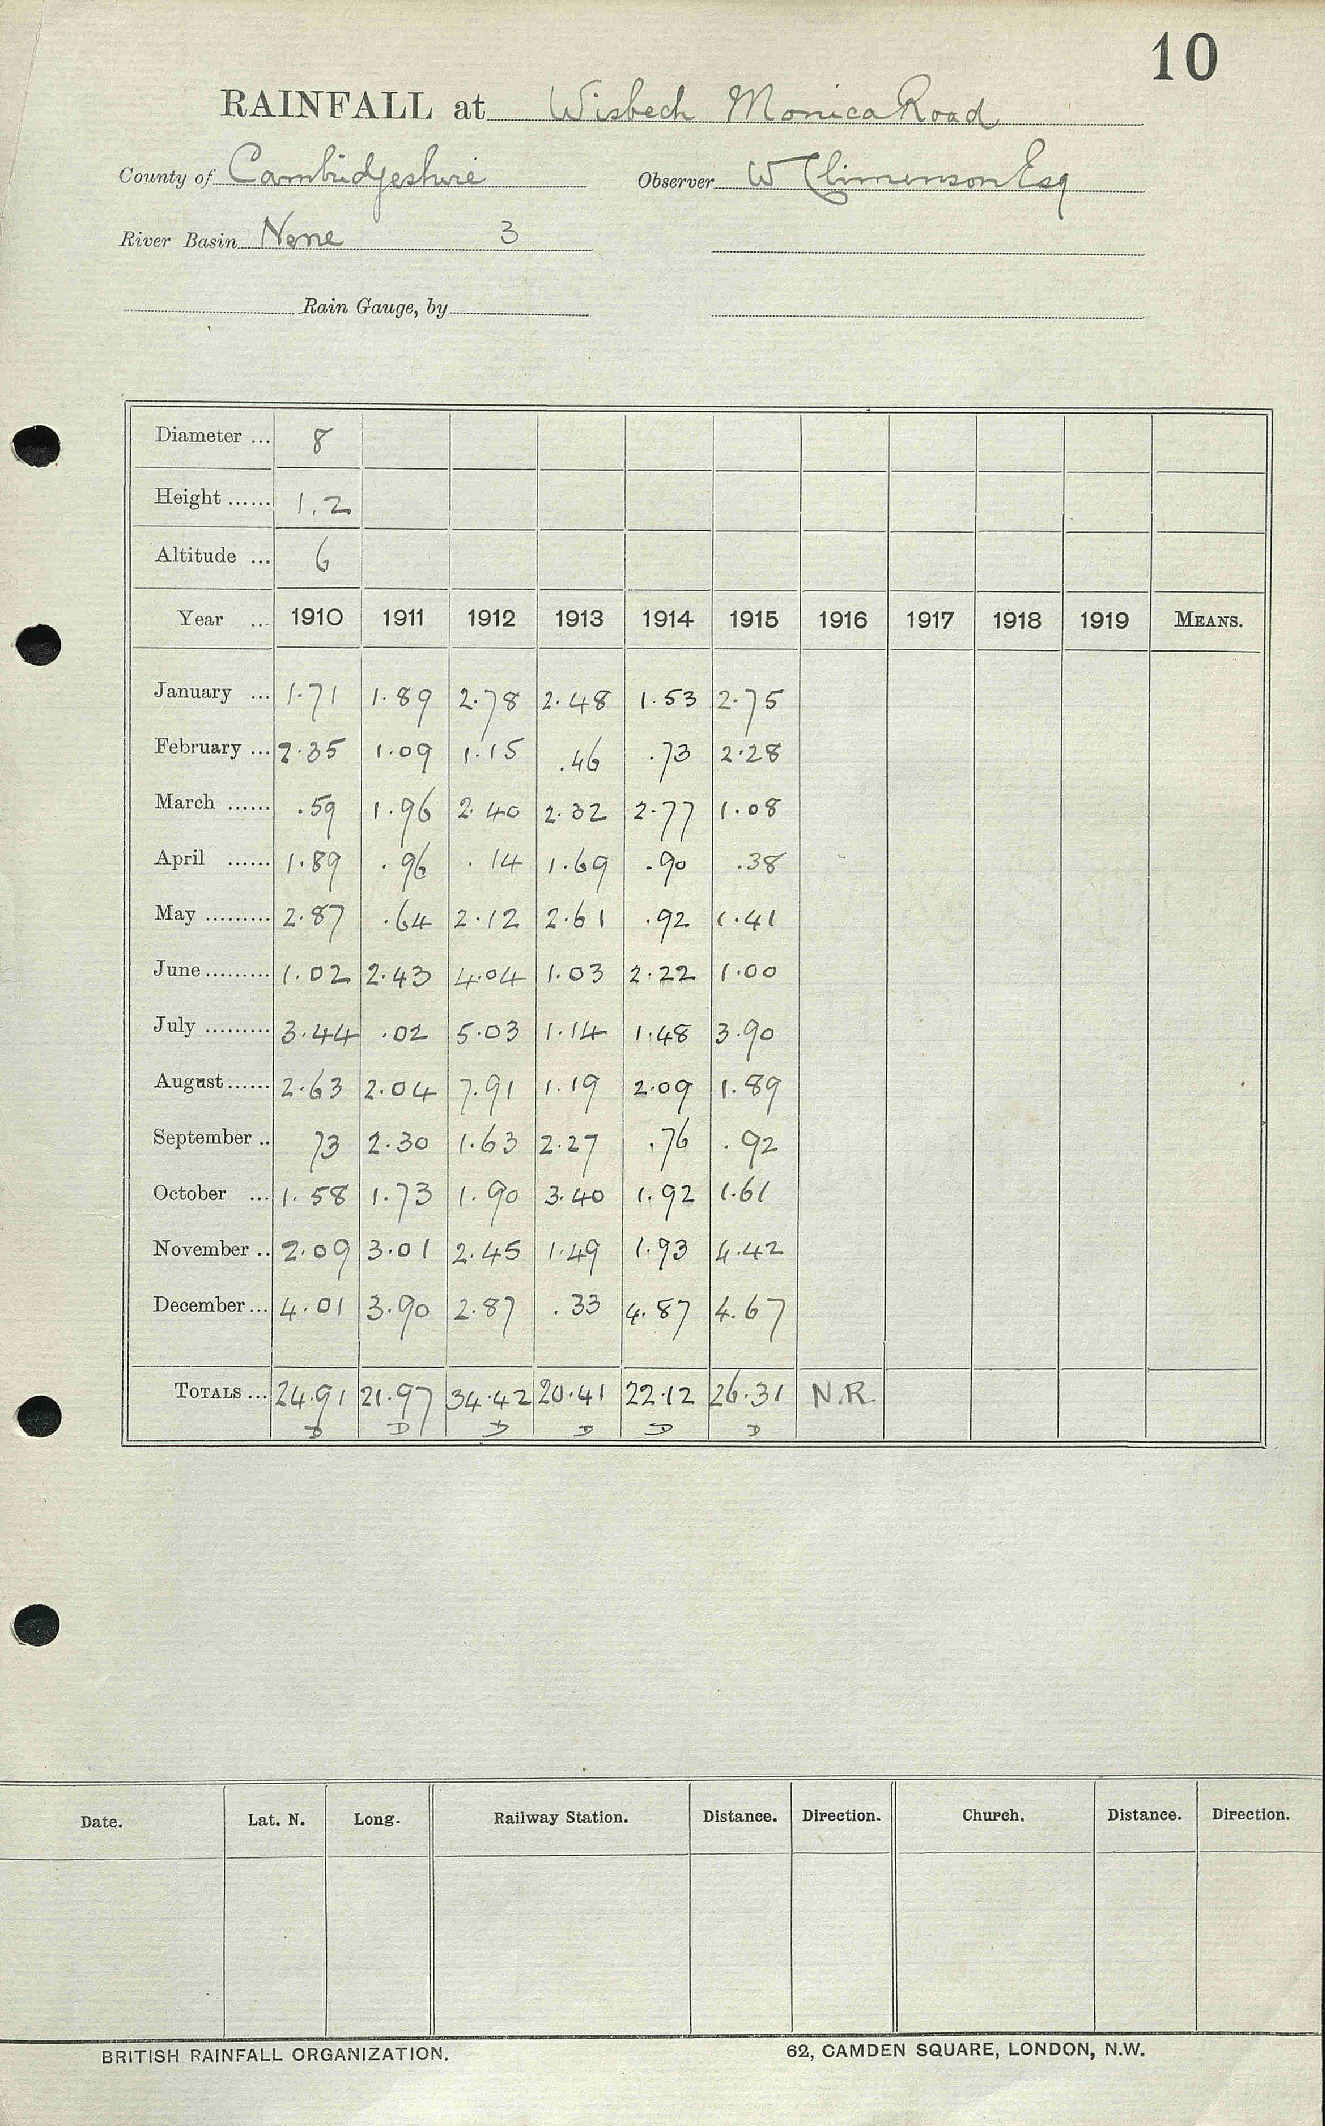 10
RAINFALL at Wisbech Monica Road
County of Cambridgeshire Observer W Climenson Esq
River Basin None 3
Rain Gauge, by
Diameter ... 8
Height ...... 1.2
Altitude ... 6
Year ... 1910 1911 1912 1913 1914 1915 1916 1917 1918 1919 MEANS.
January ... 1.71 1.89 2.78 2.48 1.53 2.75
February ... 2.35 1.09 1.15 .46 .73 2.28
March ...... .59 1.96 2.40 2.32 2.77 1.08
April ...... 1.89 .96 .14 1.69 .90 .38
May ......... 2.87 .64 2.12 2.61 .92 1.41
June ......... 1.02 2.43 4.04 1.03 2.22 1.00
July ......... 3.44 .02 5.03 1.14 1.48 3.90
August...... 2.63 2.04 7.91 1.19 2.09 1.89
September .. 73 2.30 1.63 2.27 .76 .92
October ... 1.58 1.73 1.90 3.40 1.92 1.61
November .. 2.09 3.01 2.45 1.49 1.93 4.42
December... 4.01 3.90 2.87 .33 4.87 4.67
TOTALS ... 24.91 21.97 34.42 20.41 22.12 26.31 N.R.
D D D D D D
Date. Lat. N. Long. Railway Station. Distance. Direction. Church. Distance. Direction.
BRITISH RAINFALL ORGANIZATION. 62, CAMDEN SQUARE, LONDON, N.W.